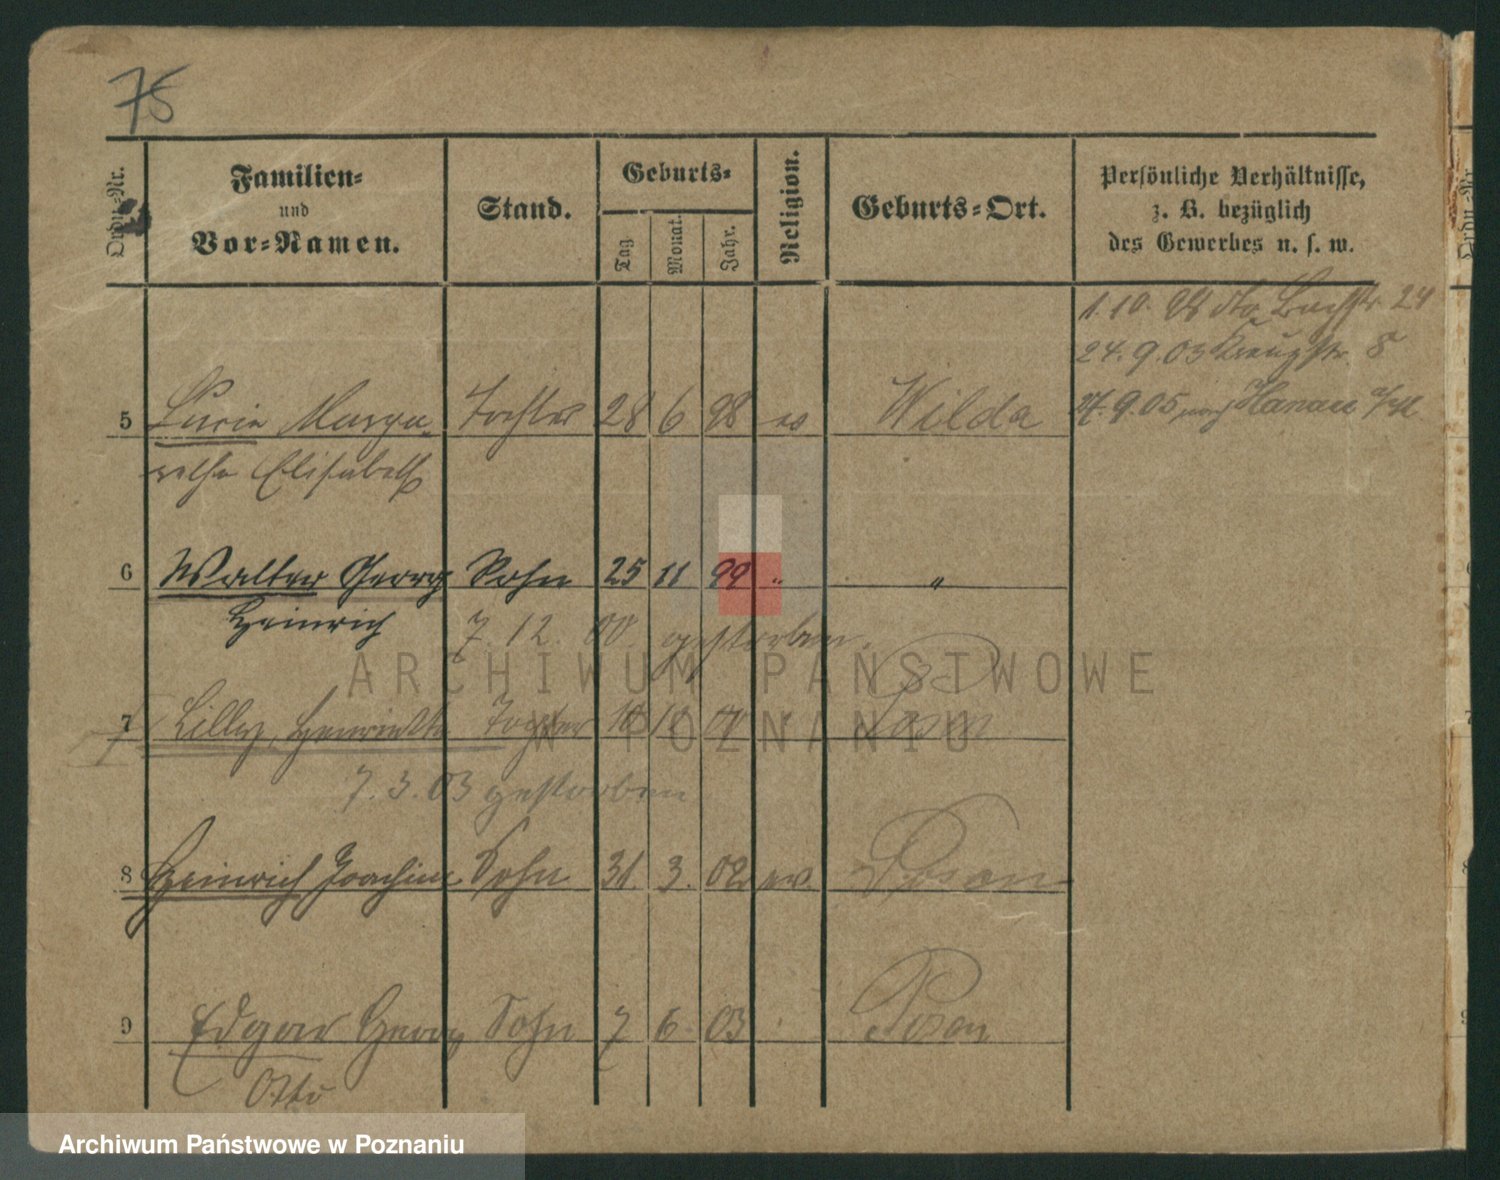 75
Ordn.-Nr.
Familien-
und
Vor-Namen.
Stand.
Geburts-
Tag.
Monat.
Jahr.
Religion.
Geburts-Ort.
Persönliche Verhältnisse,
z. B. bezüglich
des Gewerbes u. s. w.
1.10. 98 dto Bachstr. 24
24.9.03 Kreuzstr. 8
27.9.05 nach Hanau
5 Lucie Marga- Tochter 28 6 98 ev Wilda
rethe Elisabeth
6 Walter Georg Sohn 25 11 99 " "
Heinrich 7.12.00 gestorben.
7 Lilly, Henriette Tochter 18 Posen
7.3.03 gestorben
8 Heinrich Joachim Sohn 31. 3. 02 ev. Posen
9 Edgar Georg Sohn 7 6 03 Posen
Otto
ARCHIWUM PAŃSTWOWE
W POZNANIU
Archiwum Państwowe w Poznaniu